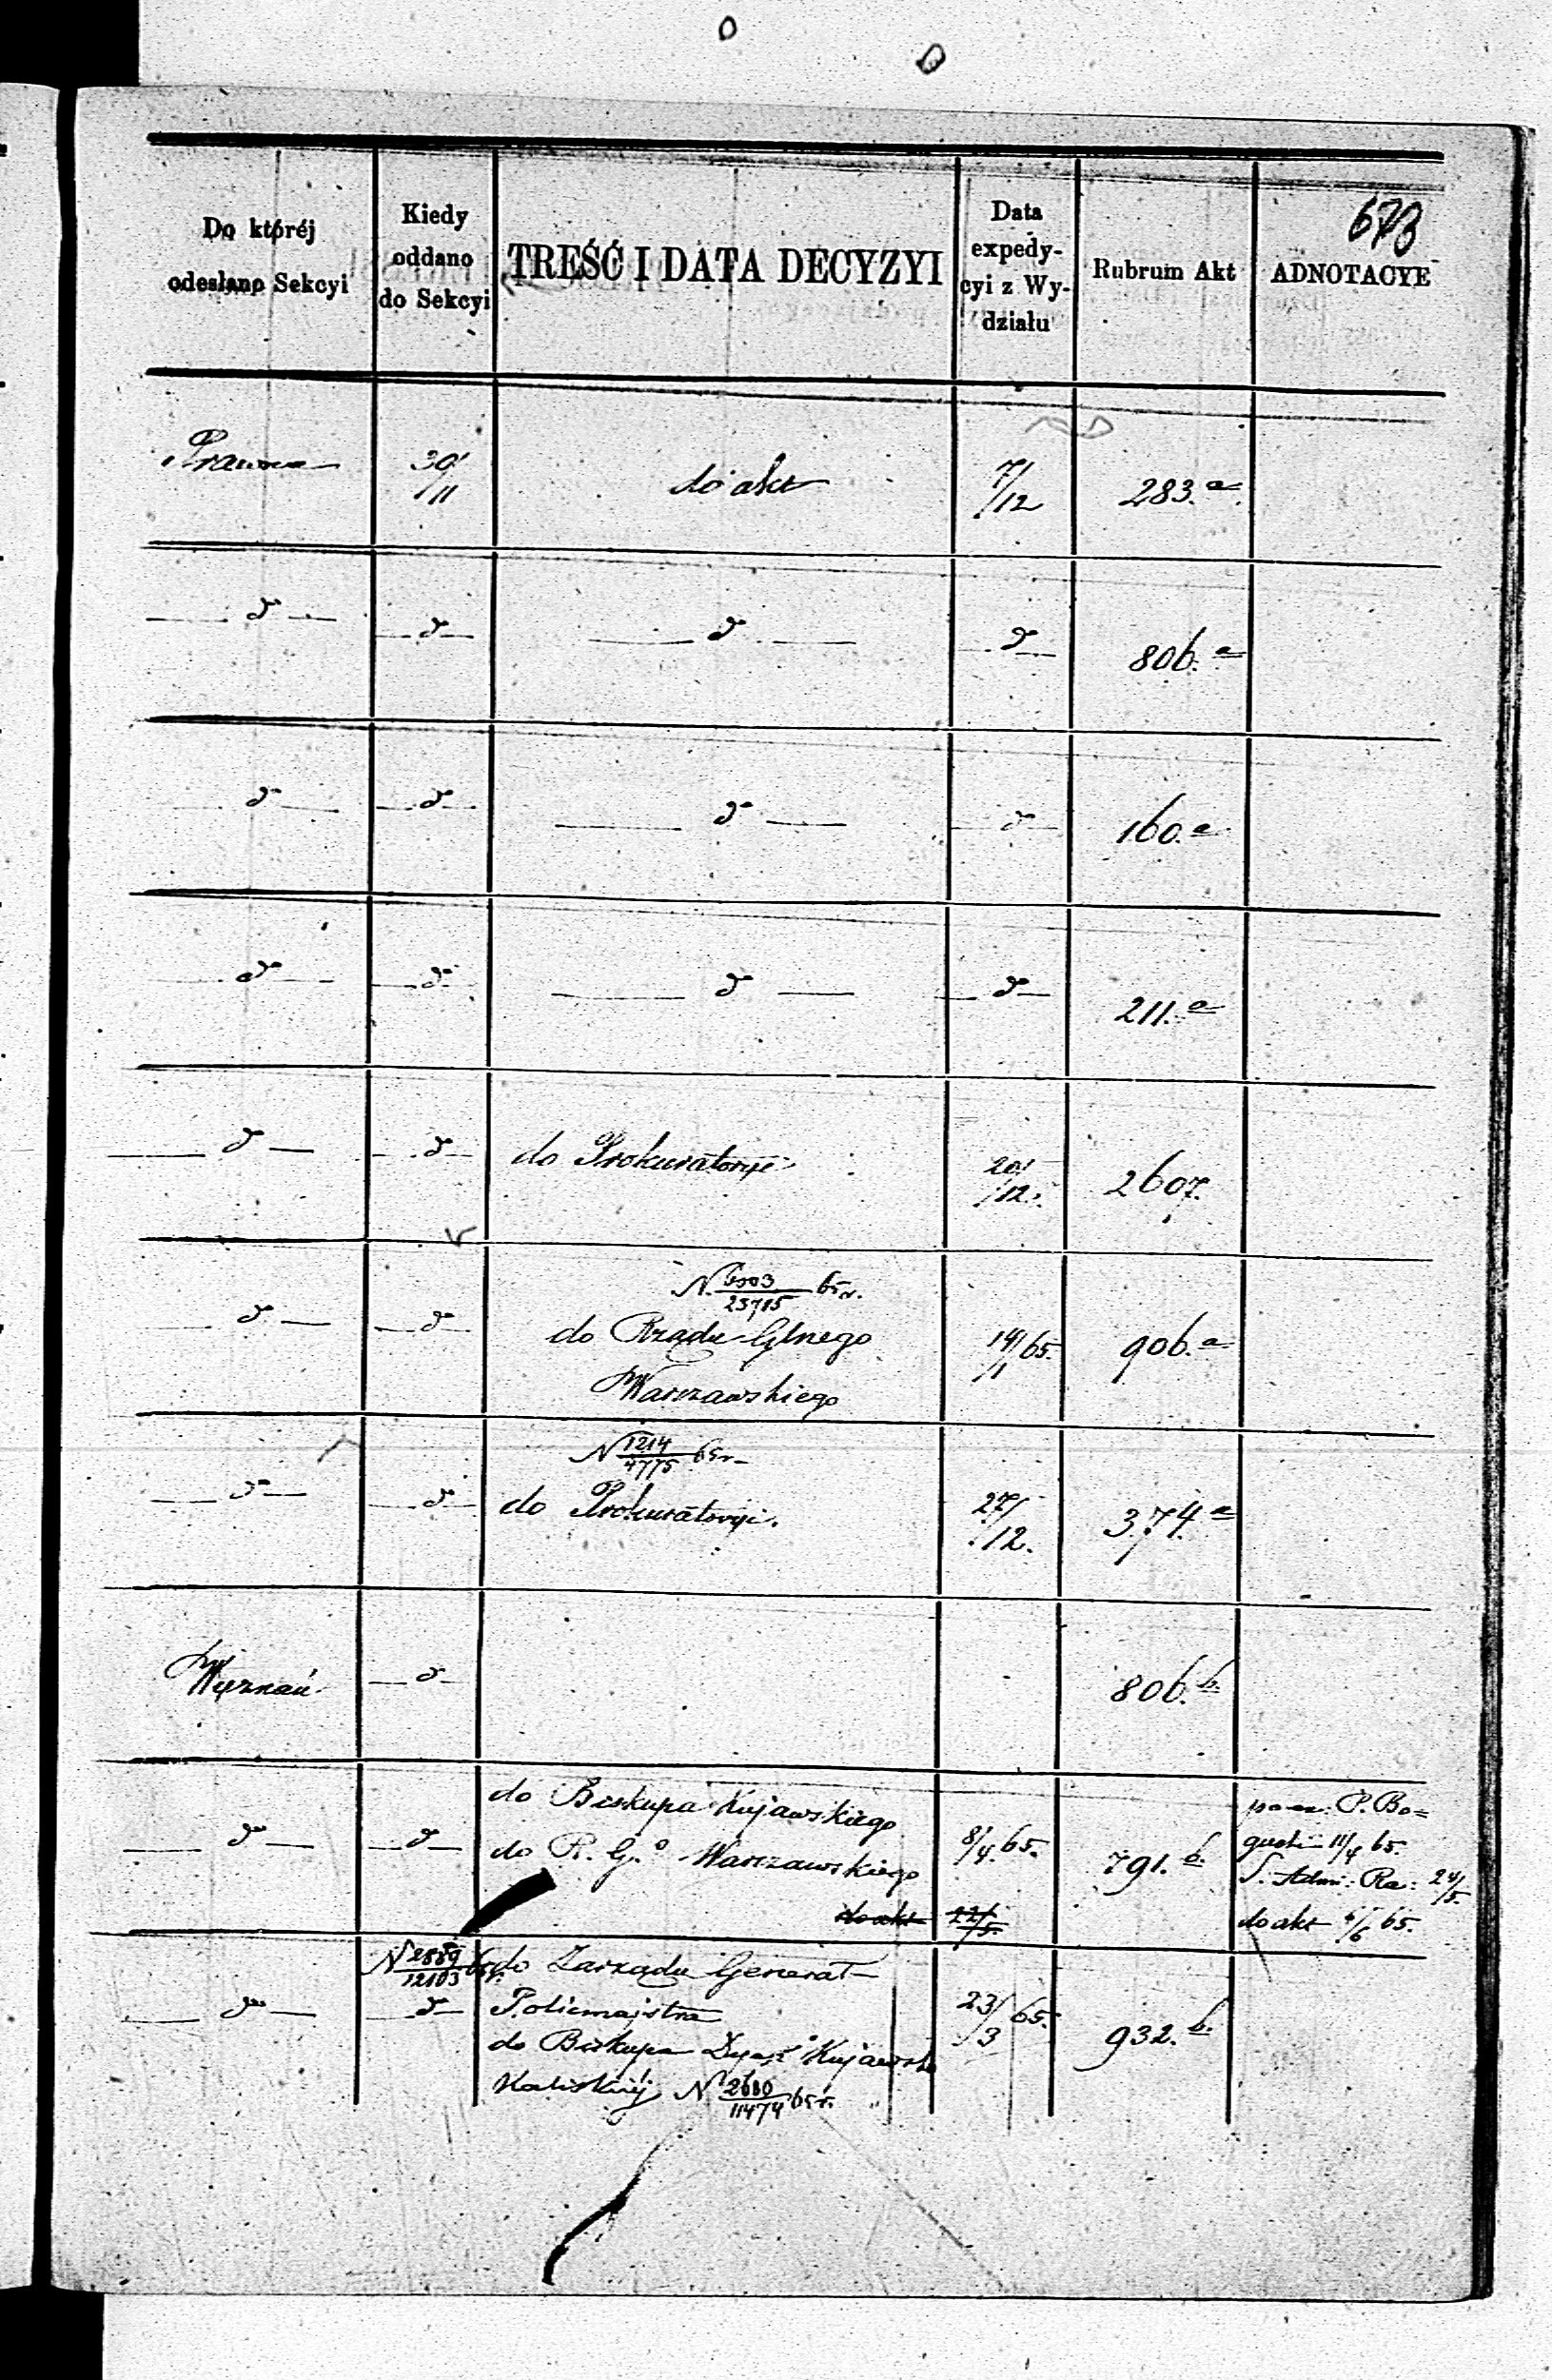 673
Do któréj
odesłano Sekcyi
Kiedy
oddano
do Sekcyi
TREŚĆ I DATA DECYZYI
Data
expedy-
cyi z Wy-
działu
Rubrum Akt
ADNOTACYE
Prawna 30/11 do akt 7/12 283.a
— d — — d — — d — — d — 806.a
— d — — d — — d — — d — 160.a
— d — — d — — d — — d — 211.a
— d — — d — do Prokuratoryi 20/12. 2607.
N. 6503/23715 65 r.
— d — — d — do Rządu Glnego 14/1 65. 906.a
Warszawskiego
N 1214/4775 65 r
— d — — d — do Prokuratoryi. 27/12. 374.a
Wyznań — d — 806.b.
do Biskupa Kujawskiego
— d — — d — do R. G.o Warszawskiego 8/4. 65. 791.b.
do akt 22/5.
P. Bo=
11/4 65.
S. Adm: Ra: 24/5.
do akt 6/6 65.
N 2889/12103 65 r. do Zarządu Generał
— d — — d — Policmajstra 23/3 65. 932.b.
do Biskupa Dyec. Kujawsko
Kaliskiéj N 2680/11474 65 r.